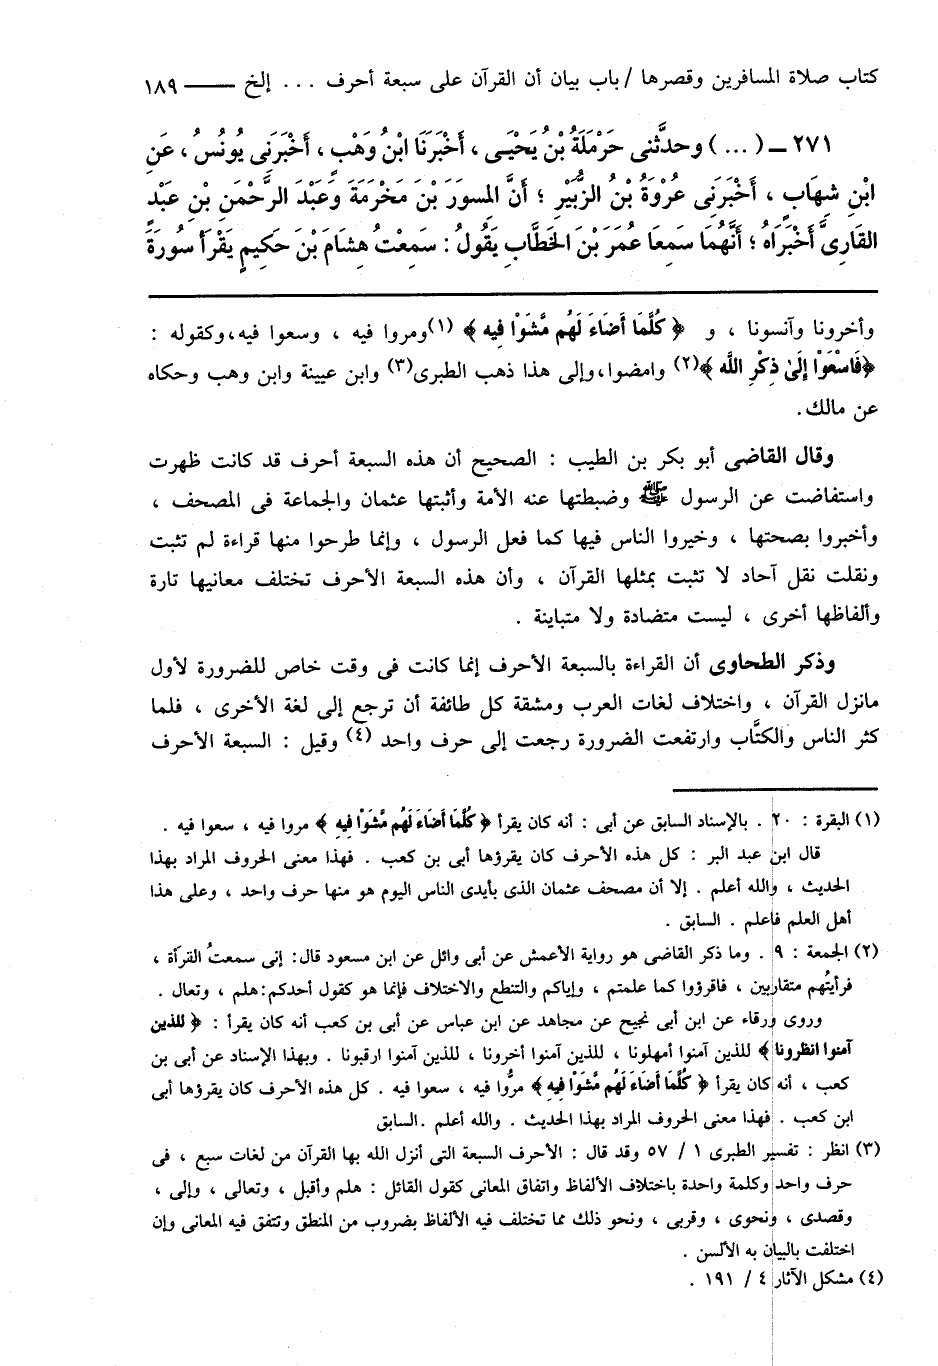 كتاب صلاة المسافرين وقصرها / باب بيان أن القرآن على سبعة أحرف ... إلخ ــــــ ١٨٩
٢٧١ ــ ( ... ) وحدَّثنى حَرْمَلَةُ بْنُ يَحْيَـى ، أَخْبَرَنَا ابْنُ وَهْبٍ ، أَخْبَرَنِى يُونُسُ ، عَنِ
ابْنِ شِهَابٍ ، أَخْبَرَنِى عُرْوَةُ بْنُ الزُّبَيْرِ ؛ أَنَّ المِسوَرَ بْنَ مَخْرَمَةَ وَعَبْدَ الرَّحْمَنِ بْنِ عَبْدٍ
القَارِىَّ أَخْبَرَاهُ ؛ أَنَّهُمَا سَمِعَا عُمَرَ بْنَ الخَطَّابِ يَقُولُ : سَمِعْتُ هِشَامَ بْنَ حَكِيمٍ يَقْرَأ سُورَةَ
وأخرونا وآنسونا ، و ﴿ كُلَّمَا أَضَاءَ لَهُم مَّشَوْا فِيهِ ﴾ (١)ومروا فيه ، وسعوا فيه،وكقوله :
﴿فَاسْعَوْا إِلَىٰ ذِكْرِ اللَّه ﴾(٢) وامضوا،وإلى هذا ذهب الطبرى(٣) وابن عيينة وابن وهب وحكاه
عن مالك.
وقال القاضى أبو بكر بن الطيب : الصحيح أن هذه السبعة أحرف قد كانت ظهرت
واستفاضت عن الرسول ﷺ وضبطتها عنه الأمة وأثبتها عثمان والجماعة فى المصحف ،
وأخبروا بصحتها ، وخيروا الناس فيها كما فعل الرسول ، وإنما طرحوا منها قراءة لم تثبت
ونقلت نقل آحاد لا تثبت بمثلها القرآن ، وأن هذه السبعة الأحرف تختلف معانيها تارة
وألفاظها أخرى ، ليست متضادة ولا متباينة .
وذكر الطحاوى أن القراءة بالسبعة الأحرف إنما كانت فى وقت خاص للضرورة لأول
مانزل القرآن ، واختلاف لغات العرب ومشقة كل طائفة أن ترجع إلى لغة الأخرى ، فلما
كثر الناس والكتَّاب وارتفعت الضرورة رجعت إلى حرف واحد (٤) وقيل : السبعة الأحرف
(١) البقرة : ٢٠ . بالإسناد السابق عن أبى : أنه كان يقرأ ﴿ كُلَّمَا أَضَاءَ لَهُم مَّشَوْا فِيهِ ﴾ مروا فيه ، سعوا فيه .
قال ابن عبد البر : كل هذه الأحرف كان يقرؤها أبى بن كعب . فهذا معنى الحروف المراد بهذا
الحديث ، والله أعلم . إلا أن مصحف عثمان الذى بأيدى الناس اليوم هو منها حرف واحد ، وعلى هذا
أهل العلم فاعلم . السابق .
(٢) الجمعة : ٩ . وما ذكر القاضى هو رواية الأعمش عن أبى وائل عن ابن مسعود قال: إنى سمعتُ القرأة ،
فرأيتُهم متقاربين ، فاقرؤوا كما علمتم ، وإياكم والتنطع والاختلاف فإنما هو كقول أحدكم:هلم ، وتعال .
وروى ورقاء عن ابن أبى نجيح عن مجاهد عن ابن عباس عن أبى بن كعب أنه كان يقرأ : ﴿ للذين
آمنوا انظرونا ﴾ للذين آمنوا أمهلونا ، للذين آمنوا أخرونا ، للذين آمنوا ارقبونا . وبهذا الإسناد عن أبى بن
كعب ، أنه كان يقرأ ﴿ كُلَّمَا أَضَاءَ لَهُم مَّشَوْا فِيهِ ﴾ مرُّوا فيه ، سعوا فيه . كل هذه الأحرف كان يقرؤها أبى
ابن كعب . فهذا معنى الحروف المراد بهذا الحديث . والله أعلم .السابق
(٣) انظر : تفسير الطبرى ١ / ٥٧ وقد قال : الأحرف السبعة التى أنزل الله بها القرآن من لغات سبع ، فى
حرف واحد وكلمة واحدة باختلاف الألفاظ واتفاق المعانى كقول القائل : هلم وأقبل ، وتعالى ، وإلى ،
وقصدى ، ونحوى ، وقربى ، ونحو ذلك مما تختلف فيه الألفاظ بضروب من المنطق وتتفق فيه المعانى وإن
اختلفت بالبيان به الألسن .
(٤) مشكل الآثار ٤ / ١٩١ .